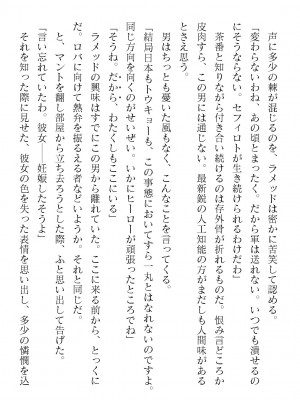 声に多少の棘が混じるのを、ラメッドは密かに苦笑して認める。
「変わらないわね、あの頃とまったく。だから軍は送れない。いつでも潰せるの
にそうならない。セフィロトが生き続けられるわけだわ」
茶番と知りながら付き合い続けるのは存外骨が折れるものだ。恨み言どころか
皮肉すら、この男には通じない。最新鋭の人工知能の方がまだしも人間味がある
とさえ思う。
男はちっとも憂いた風もなく、こんなことを言ってくる。
「結局日本もトウキョーも、この事態においてすら一丸とはなれないのですよ。
同じ方向を向くのがせいぜい。いかにヒーローが頑張ったところでね」
「そうね。だから、わたくしもここにいる」
ラメッドの興味はすでにこの男から離れていた。ここに来る前から、とっくに
だ。ロバに向けて熱弁を振るえる者などいようか。それと同じだ。
と、マントを翻し部屋から立ち去ろうとした際、ふと思い出して告げた。
「言い忘れていたわ。彼女――妊娠したそうよ」
それを知った際に見せた、彼女の色を失った表情を思い出し、多少の憐憫を込